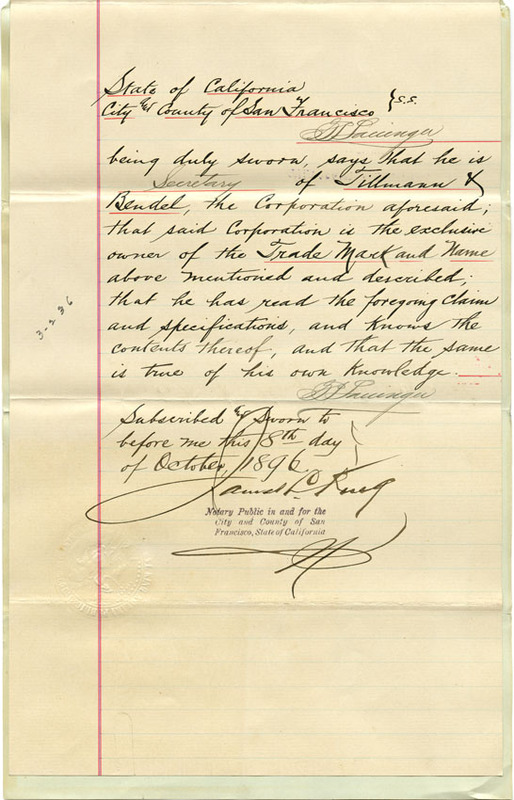 State of California
City & County of San Francisco } S.S.
being duly sworn, says that he is
Secretary of Tillmann &
Bendel, the Corporation aforesaid;
that said Corporation is the exclusive
owner of the Trade Mark and Name
above mentioned and described;
that he has read the foregoing Claim
and specifications, and knows the
contents thereof, and that the same
is true of his own Knowledge.
Subscribed & Sworn to
before me this 8th day
of October, 1896
James
Notary Public in and for the
City and County of San
Francisco, State of California
3-236